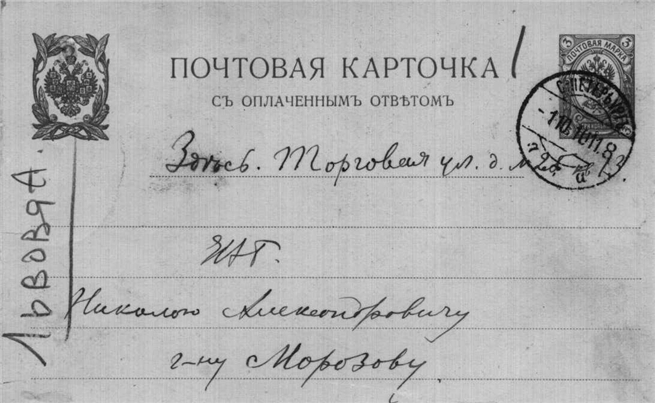 ПОЧТОВАЯ КАРТОЧКА
СЪ ОПЛАЧЕННЫМЪ ОТВѢТОМЪ
3 ПОЧТОВАЯ МАРКА 3
С.ПЕТЕРБУРГЪ
-1.10.1011.8
Здѣсь. Торговая ул. д. №
ЕВГ.
Николаю Александровичу
г-ну Морозову.
Львовя